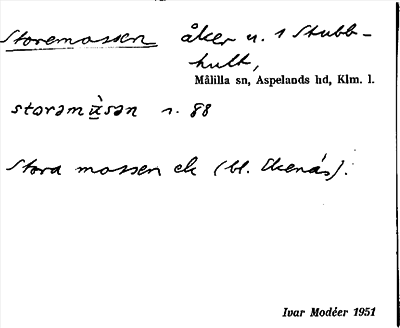 Storemossen åker u. 1 Stubb-
hult,
Målilla sn, Aspelands hd, Klm. l.
storəmùsən r. 88
Stora mossen ek (bl. Ekenäs).
Ivar Modéer 1951